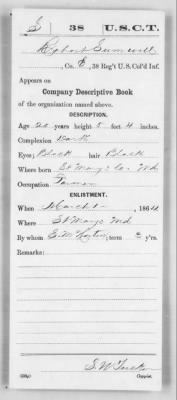 S 38 U.S.C.T.
Robert Sumwell
, Co. E, 38 Reg't U.S. Col'd Inf.
Appears on
Company Descriptive Book
of the organization named above.
DESCRIPTION.
Age 20 years; height 5 feet 4 inches.
Complexion Dark
Eyes; Black hair Black
Where born St Mary's Co. Md.
Occupation Farmer
ENLISTMENT.
When March 1, 1864
Where St Marys Md
By whom term 3 y'rs.
Remarks:
Copyist.